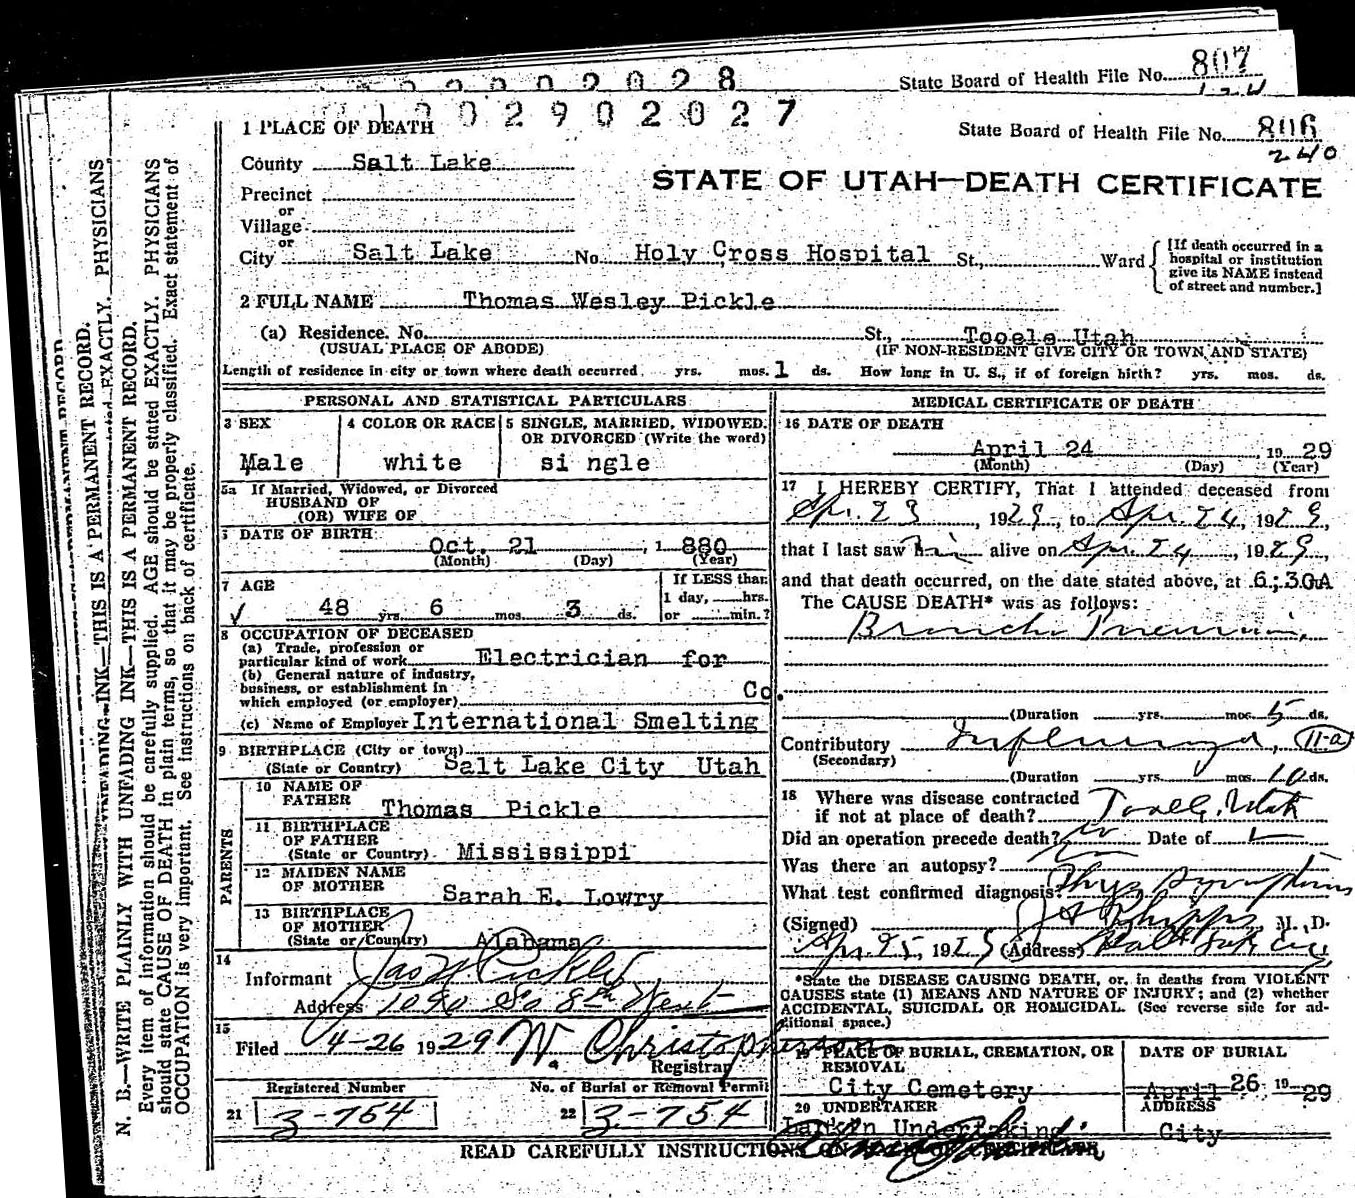 State Board of Health File No. 807
2028
1002902027
State Board of Health File No. 806
240
1 PLACE OF DEATH
STATE OF UTAH—DEATH CERTIFICATE
County Salt Lake
Precinct
or
Village
or
City Salt Lake No. Holy Cross Hospital St., Ward
[If death occurred in a
hospital or institution
give its NAME instead
of street and number.]
2 FULL NAME Thomas Wesley Pickle
(a) Residence. No. St., Tooele Utah
(USUAL PLACE OF ABODE) (IF NON-RESIDENT GIVE CITY OR TOWN AND STATE)
Length of residence in city or town where death occurred yrs. mos. 1 ds. How long in U. S., if of foreign birth? yrs. mos. ds.
PERSONAL AND STATISTICAL PARTICULARS
3 SEX
Male
4 COLOR OR RACE
white
5 SINGLE, MARRIED, WIDOWED,
OR DIVORCED (Write the word)
si ngle
5a If Married, Widowed, or Divorced
HUSBAND OF
(OR) WIFE OF
6 DATE OF BIRTH
Oct. 21, 1 880
(Month) (Day) (Year)
7 AGE
48 yrs. 6 mos. 3 ds.
If LESS than
1 day, hrs.
or min.?
8 OCCUPATION OF DECEASED
(a) Trade, profession or
particular kind of work Electrician for
(b) General nature of industry,
business, or establishment in
which employed (or employer) Co.
(c) Name of Employer International Smelting
9 BIRTHPLACE (City or town)
(State or Country) Salt Lake City Utah
PARENTS
10 NAME OF
FATHER Thomas Pickle
11 BIRTHPLACE
OF FATHER
(State or Country) Mississippi
12 MAIDEN NAME
OF MOTHER Sarah E. Lowry
13 BIRTHPLACE
OF MOTHER
(State or Country) Alabama
14
Informant Jas Pickle
Address 1090 So 8th West
15
Filed 4-26 1929 W. Christopherson
Registrar
Registered Number
21 3-754
No. of Burial or Removal Permit
22 3-754
MEDICAL CERTIFICATE OF DEATH
16 DATE OF DEATH
April 24, 1929
(Month) (Day) (Year)
17 I HEREBY CERTIFY, That I attended deceased from
Apr. 23, 1929, to Apr. 24, 1929,
that I last saw him alive on Apr. 24, 1929,
and that death occurred, on the date stated above, at 6:30A
The CAUSE DEATH* was as follows:
Broncho Pneumonia,
(Duration yrs. mos. 5 ds.
Contributory Influenza, 11-a
(Secondary)
(Duration yrs. mos. 10 ds.
18 Where was disease contracted
if not at place of death? Tooele, Utah
Did an operation precede death? No Date of
Was there an autopsy?
What test confirmed diagnosis? Phys symptoms
(Signed) Phipps M. D.
Apr. 25, 1929 (Address) Salt Lake City
*State the DISEASE CAUSING DEATH, or, in deaths from VIOLENT
CAUSES state (1) MEANS AND NATURE OF INJURY; and (2) whether
ACCIDENTAL, SUICIDAL OR HOMICIDAL. (See reverse side for ad-
ditional space.)
19 PLACE OF BURIAL, CREMATION, OR
REMOVAL
City Cemetery
DATE OF BURIAL
April 26 1929
20 UNDERTAKER
Larkin Undertaking
ADDRESS
City
READ CAREFULLY INSTRUCTIONS ON BACK OF CERTIFICATE
N. B.—WRITE PLAINLY WITH UNFADING INK—THIS IS A PERMANENT RECORD.
Every item of information should be carefully supplied. AGE should be stated EXACTLY. PHYSICIANS
should state CAUSE OF DEATH in plain terms, so that it may be properly classified. Exact statement of
OCCUPATION is very important. See instructions on back of certificate.
UNFADING INK—THIS IS A PERMANENT RECORD.
EXACTLY. PHYSICIANS